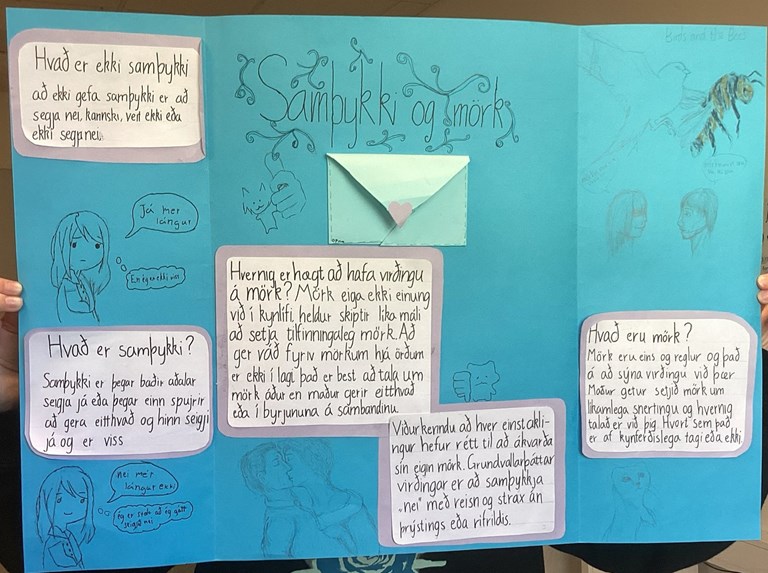 Hvað er ekki samþykki
að ekki gefa samþykki er að
segja nei, kannski, veit ekki eða
ekki segja nei.
Já mér
lángur
En ég er ekki viss
Hvað er samþykki?
Samþykki er þegar báðir aðalar
seigja já eða þegar einn spujrir
að gera eitthvað og hinn seigji
já og er viss
nei mér
lángur ekki
Ég er að ég gått
seigja nei
Samþykki og mörk
Hvernig er hægt að hafa virðingu
á mörk? Mörk eiga ekki einung
við í kynlífi, heldur skiptir líka máli
að setja tilfinningaleg mörk. Að
ger váð fyriv mörkum hjá örðum
er ekki í lagi. það er best að tala um
mörk áður en maður gerir eitthvað
eða í byrjununa á sambandinu.
Viðurkenndu að hver einstakli-
ingur hefur rétt til að ákvarða
sín eigin mörk. Grundvallarþáttar
virðingar er að samþykkja
„nei" með reisn og strax án
þrýstings eða rifrildis.
Birds and the Bees
Hvað eru mörk?
Mörk eru eins og reglur og það
á að sýna virðingu við þær
Maður getur setjið mörk um
líkamlega snertingu og hvernig
talað er við þig. Hvort sem það
er af kynferðislega tagi eða ekki